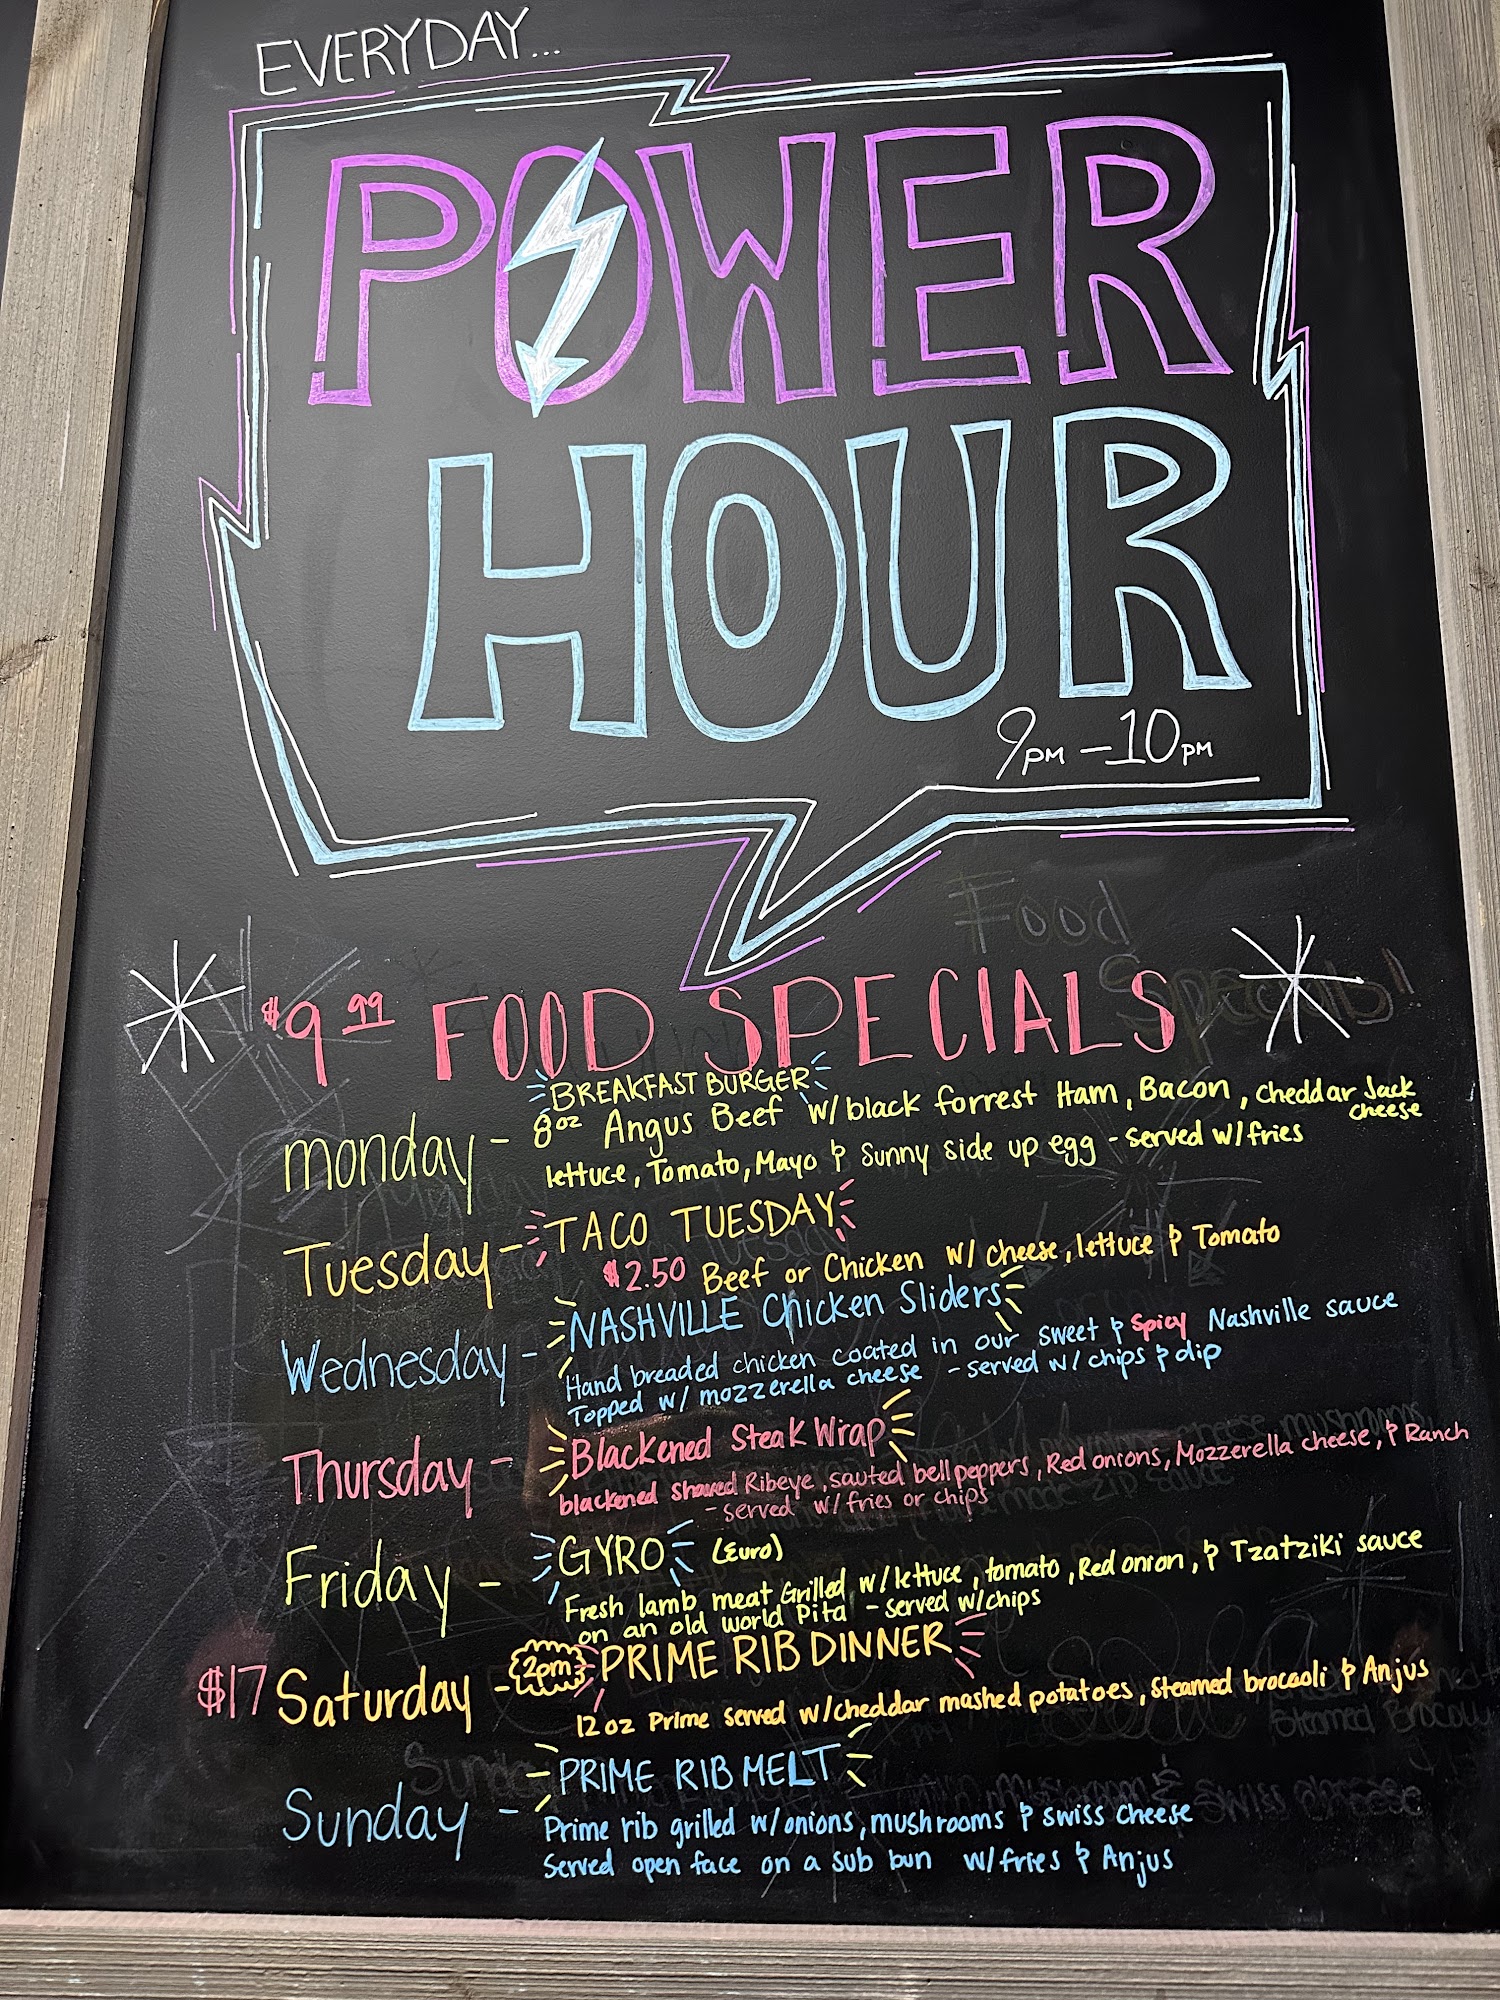 EVERYDAY...
POWER
HOUR
9PM - 10PM
$9.99 FOOD SPECIALS
BREAKFAST BURGER
monday - 8oz Angus Beef w/ black forrest Ham, Bacon, cheddar Jack cheese
lettuce, Tomato, Mayo & Sunny side up egg - served w/ fries
Tuesday - TACO TUESDAY
$2.50 Beef or Chicken w/ cheese, lettuce & Tomato
Wednesday - NASHVILLE Chicken Sliders
Hand breaded chicken coated in our sweet & Spicy Nashville sauce
Topped w/ mozzerella cheese - served w/ chips & dip
Thursday - Blackened Steak Wrap
blackened shaved Ribeye, sauted bell peppers, Red onions, Mozzerella cheese, & Ranch
- served w/ fries or chips
Friday - GYRO (Euro)
Fresh lamb meat Grilled w/ lettuce, tomato, Red onion, & Tzatziki sauce
on an old world Pita - served w/ chips
$17 Saturday - 2pm PRIME RIB DINNER
12oz Prime served w/ cheddar mashed potatoes, steamed broccoli & Anjus
Sunday - PRIME RIB MELT
Prime rib grilled w/ onions, mushrooms & swiss cheese
Served open face on a sub bun w/ fries & Anjus
Food
Specials!!